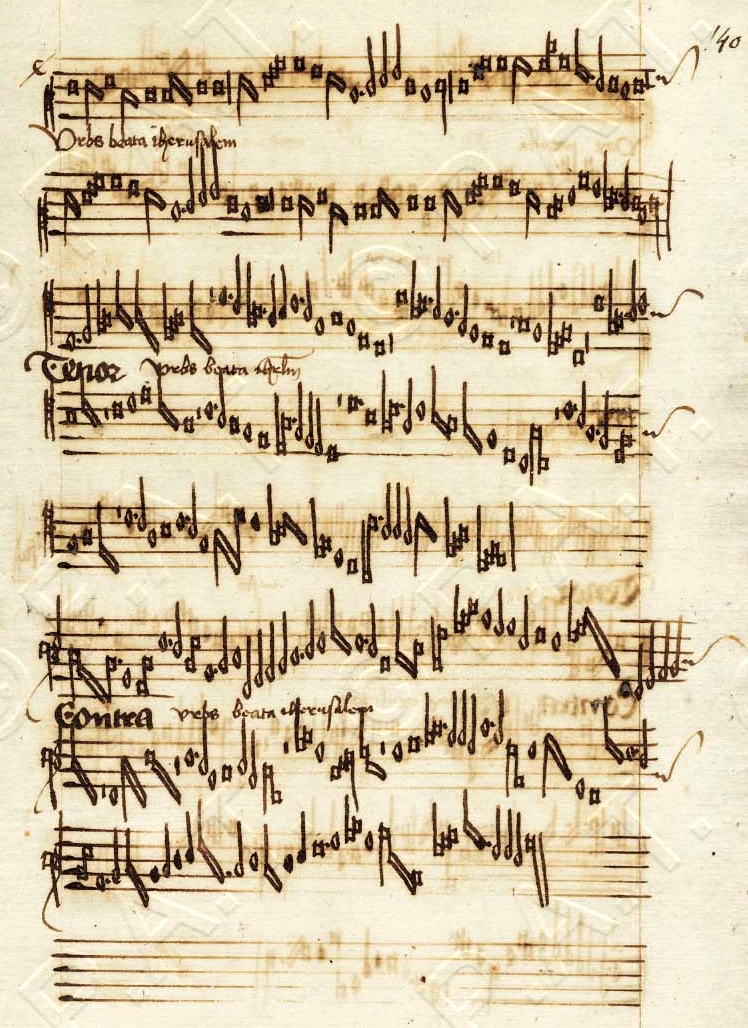 140
Urbs beata iherusalem
Tenor Urbs beata ihrlm
Contra Urbs beata iherusalem